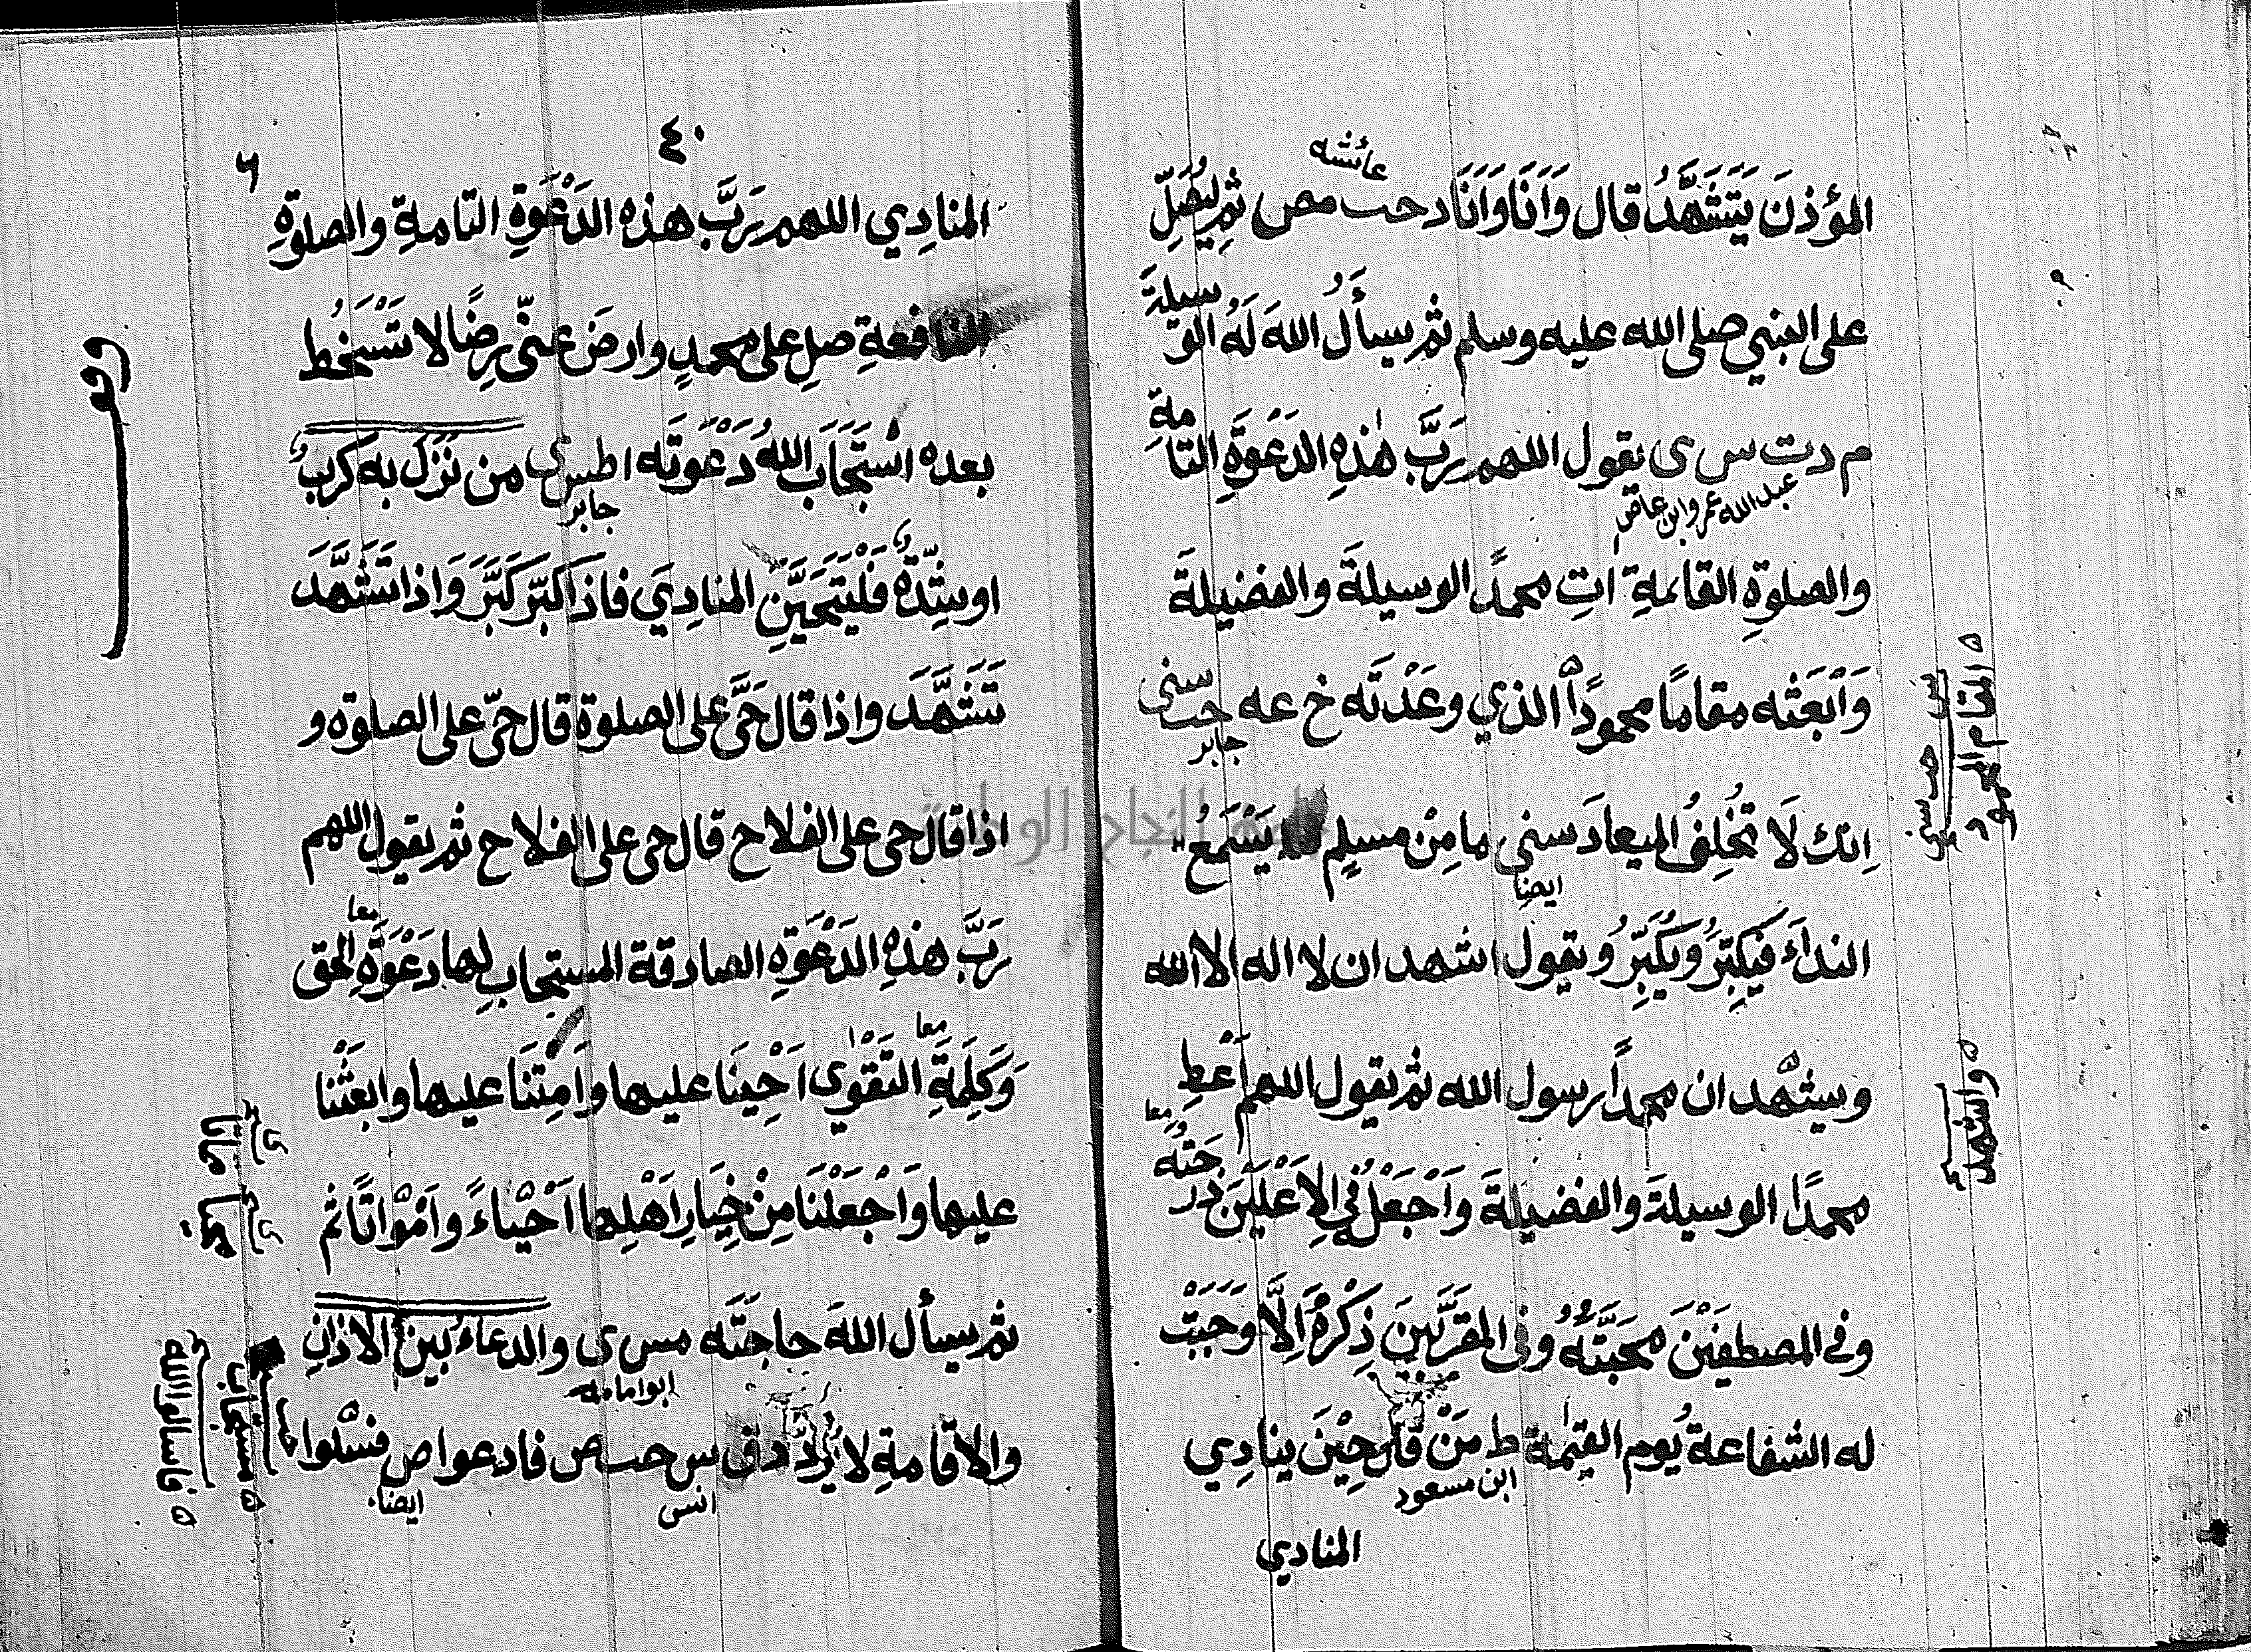 عائشه
المؤذنَ يَتَشَهَّدُ قال وَاَنَا وَاَنَا د حب مص ثم لْيُصَلِّ
على النبي صلى الله عليه وسلم ثم يسأَلُ اللهَ لَهُ الوسيلةَ
م د ت س ى يقول اللهم رَبَّ هٰذِهِ الدَعْوَةِ التامةِ
عبد الله عمرو ابن عاص
والصلوةِ القائمةِ اتِ محمدًا الوسيلةَ والفضيلةَ
وَابْعَثْه مقامًا محمودًا الذي وعَدْتَه خ عه حب سنى
جابر
اِنك لَا تُخْلِفُ الميعادَ سنى ما مِنْ مسلِمٍ يَسْمَعُ
ايضا
النداءَ فيُكَبِّرُ ويُكَبِّرُ ويقول اشهد ان لا اله الا الله
ويشهد ان محمداً رسول الله ثم يقول اللهم اَعْطِ
محمدًا الوسيلةَ والفضيلةَ وَاجْعَلْ في الاَعْلَيْنَ درجته
معا
وفي المصطفَيْنَ محَبَّتَهُ وفي المقرَّبينَ ذِكْرَهُ اِلَّا وَجَبَتْ
له الشفاعةُ يوم القيٰمة ط مَنْ قال حِيْنَ ينادِي
ابن مسعود
المنادي
٥ المقام المحمود
س حب سنى
٥ والشهد
٤٠
المنادِي اللهم رَبَّ هذه الدَعْوَةِ التامةِ والصلوةِ
النافعةِ صلِ على محمدٍ وارضَ عنّى رِضًا لا تَسْخَطُ
بعده اسْتَجَابَ اللهُ دَعْوَتَه ا طس ى من نَزَلَ به كَرْبٌ
جابر
او شِدَّةٌ فَلْيَتَحَيَّنِ المنادِيَ فاذا كبّر كَبَّرَ وَاذا تَشَهَّدَ
تَشَهَّدَ واذا قال حَيَّ على الصلوة قال حَيّ على الصلوة و
اذا قال حى على الفلاح قال حى على الفلاح ثم يقول اللهم
رَبَّ هذِهِ الدَعْوَةِ الصادقة المستجابِ لها دَعْوَةِ الحق
معا
وَكَلِمَةِ التَقْوٰى اَحْيِنَا عليها وَاَمِتْنَا عليها وابعَثْنا
معا
عليها وَاجْعَلْنَا مِنْ خِيَارِ اَهْلِها اَحْيَاءً وَاَمْوَاتًا ثم
ثم يسأل اللهَ حاجَتَه مس ى والدعاءُ بينَ الاذانِ
ابو امامه
والاقامةِ لا يُرَدُّ د ت س حب ص فادعوا ص فسْلوا
انس
ايضا
محيا مماتا
٥ مستجاب
٥ فاسألوا الله